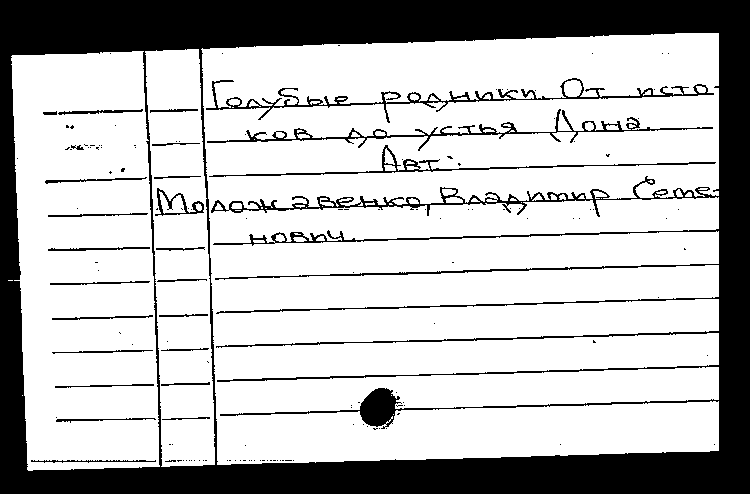 Голубые родники. От исто-
ков до устья Дона.
Авт.:
Моложавенко, Владимир Семе-
нович.